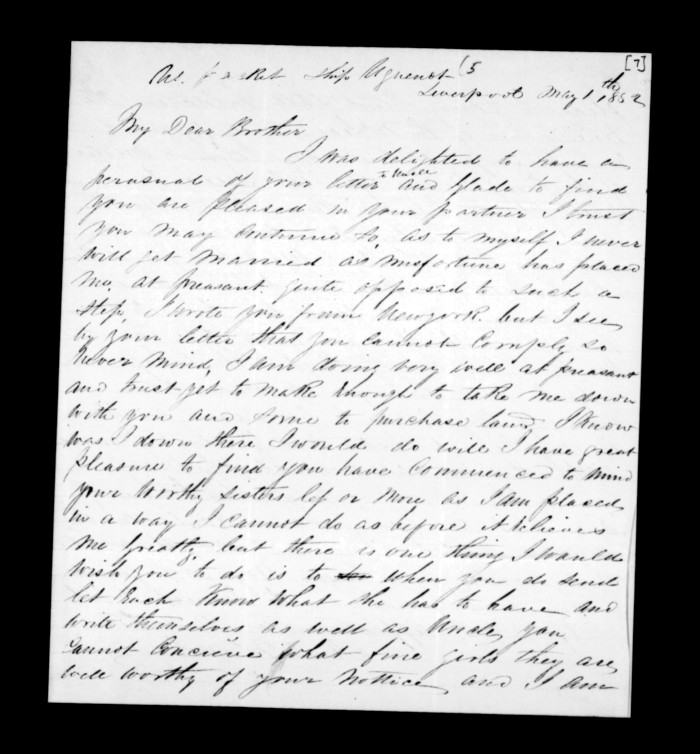 [7]
(5
ship Uguenot
Liverpool May 1th 1852
My Dear Brother
I was delighted to have a
to Uncle
perusual of your letter and Glade to find
you are pleased in your partner I trust
you may continue so, as to myself I never
will get married as misfortune has placed
me, at pleasant quite opposed to such a
step, I wrote you from Newyork but I see
by your letter that you cannot comply so
never mind, I am doing very well at pleasant
and trust yet to make enough to take me down
with you and some to purchase land, I know
was I down there I would do well I have great
pleasure to find you have commenced to mind
your worthy sisters les or more as I am placed
in a way I cannot do as before it relieves
me greatly, but there is one thing I would
wish you to do is to when you do send
let each know what she has to have and
write themselves as well as Uncle, you
cannot concieve what fine girls they are
well worthy of your nottice, and I am